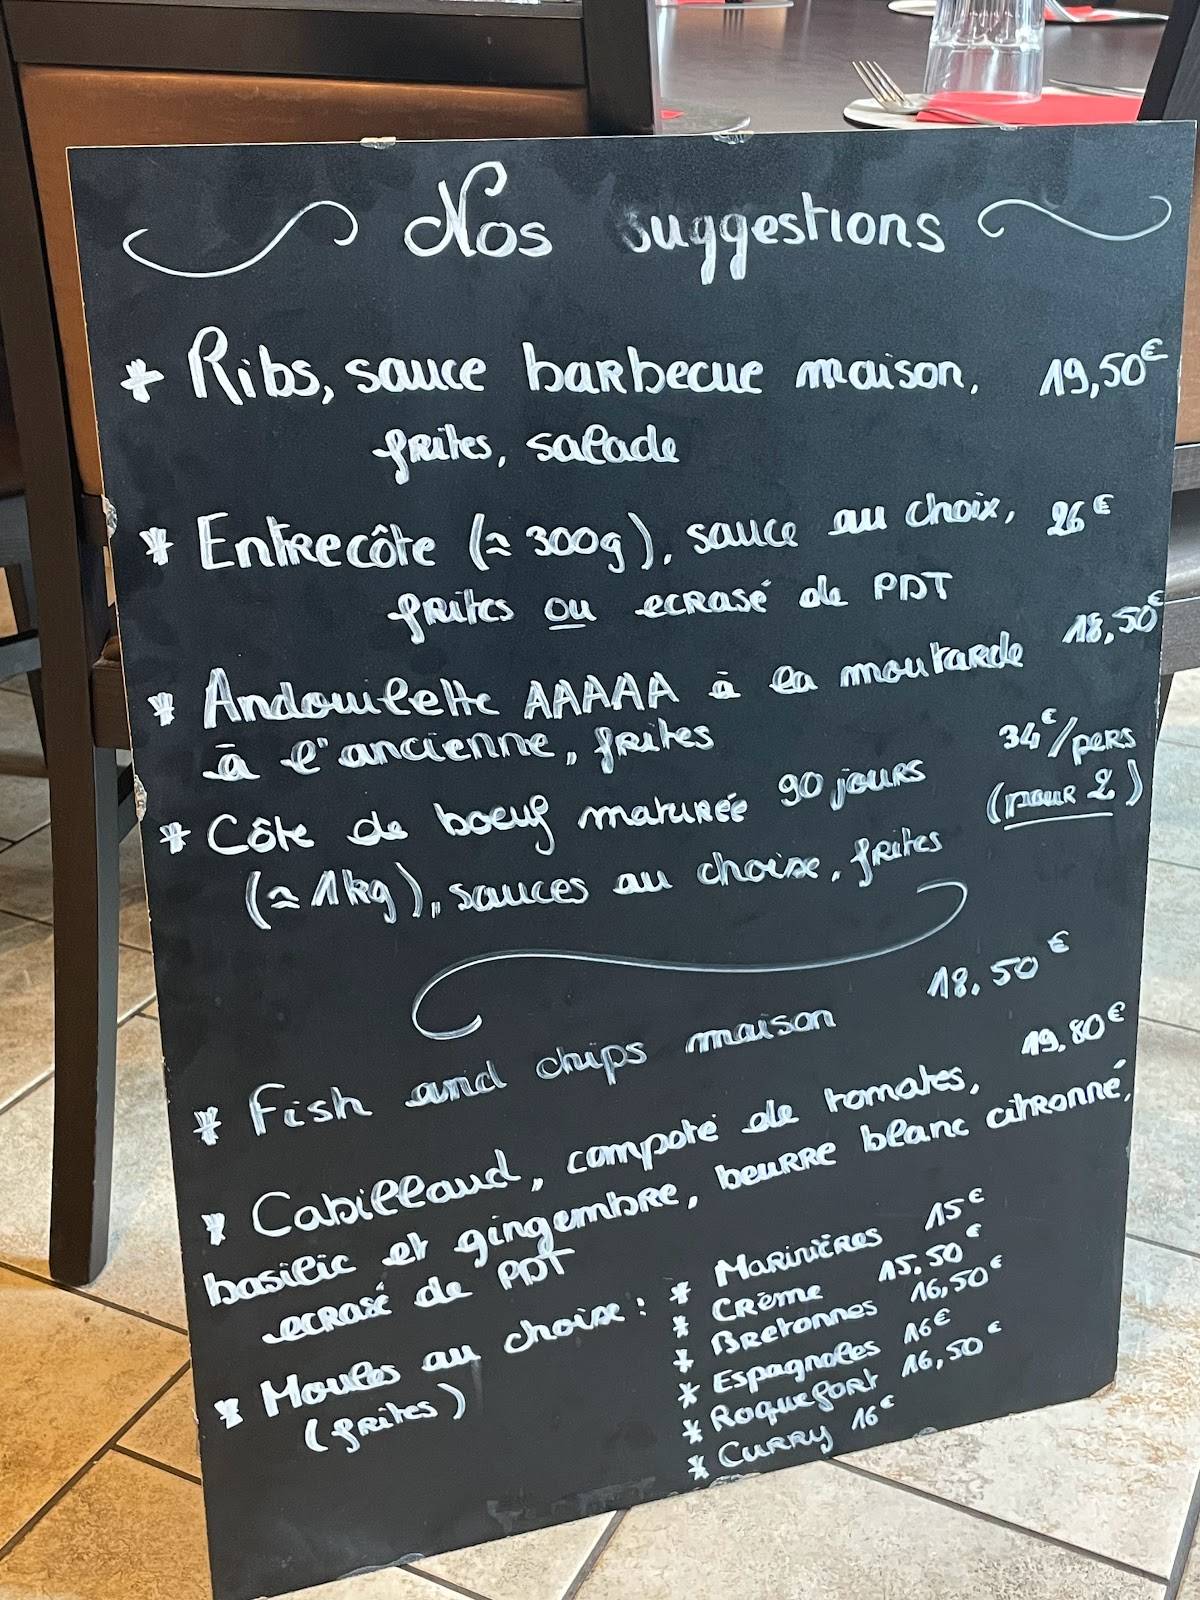 Nos suggestions
* Ribs, sauce barbecue maison, 19,50€
frites, salade
* Entrecôte (≈ 300g), sauce au choix, 26€
frites ou ecrasé de PDT
* Andouilette AAAAA à la moutarde 18,50€
à l'ancienne, frites
* Côte de boeuf maturée 90 jours 34€/pers
(≈ 1kg), sauces au choix, frites (pour 2)
* Fish and chips maison 18,50€
* Cabillaud, compoté de tomates, 19,80€
basilic et gingembre, beurre blanc citronné,
ecrasé de PDT
* Moules au choix :
(frites)
* Marinières 15€
* Crème 15,50€
* Bretonnes 16,50€
* Espagnoles 16€
* Roquefort 16,50€
* Curry 16€